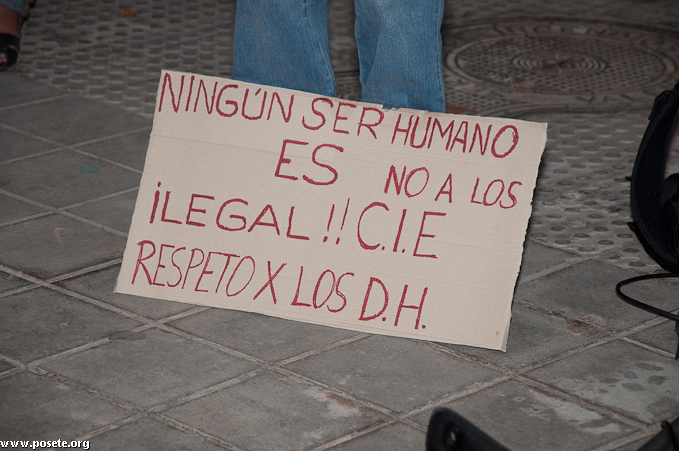 NINGÚN SER HUMANO
ES NO A LOS
iLEGAL!! C.I.E
RESPETO X LOS D.H.
www.posete.org